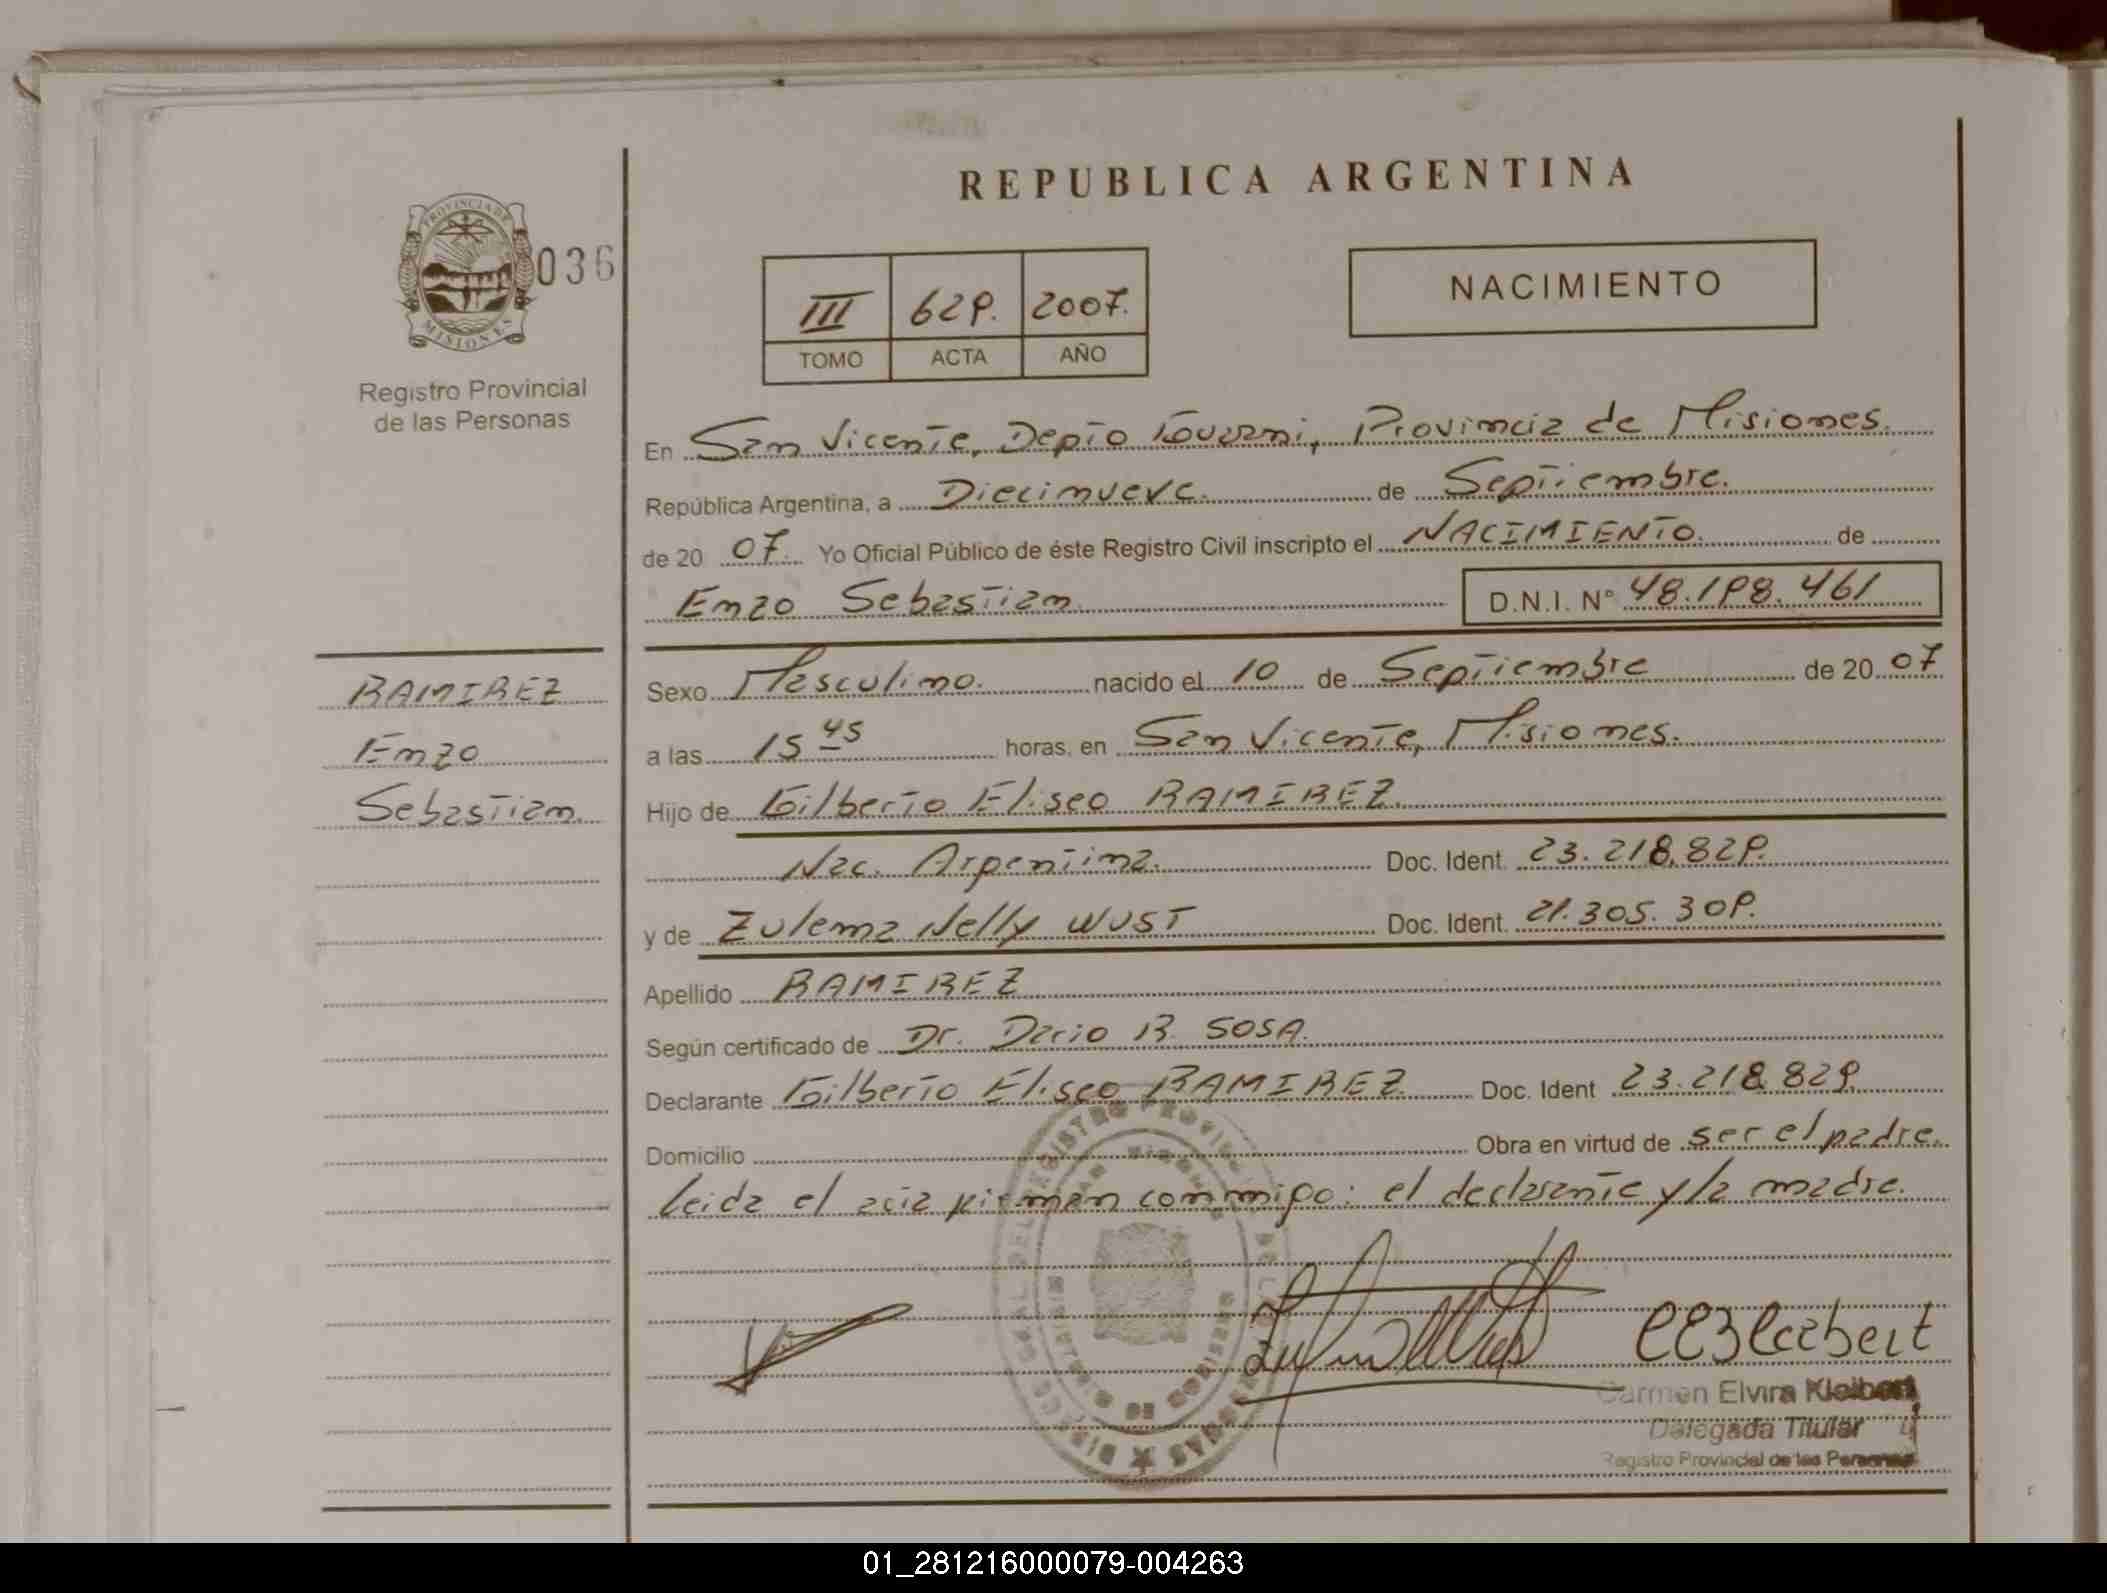 REPUBLICA ARGENTINA
PROVINCIA DE
MISIONES
036
Registro Provincial
de las Personas
III 629. 2007.
TOMO ACTA AÑO
NACIMIENTO
En San Vicente, Depto Guarani, Provincia de Misiones.
República Argentina, a Diecinueve. de Septiembre.
de 20 07. Yo Oficial Público de éste Registro Civil inscripto el NACIMIENTO. de
Enzo Sebastian D.N.I. Nº 48.198.461
RAMIREZ
Enzo
Sebastian
Sexo Masculino. nacido el 10 de Septiembre de 20 07
a las 15 45 horas, en San Vicente, Misiones.
Hijo de Gilberto Eliseo RAMIREZ
Nac. Argentina. Doc. Ident. 23.218.829.
y de Zulema Nelly WUST Doc. Ident. 21.305.309.
Apellido RAMIREZ
Según certificado de Dr. Dario R. SOSA.
Declarante Gilberto Eliseo RAMIREZ Doc. Ident 23.218.829
Domicilio Obra en virtud de ser el padre.
leida el acta firman conmigo: el declarante y la madre.
Carmen Elvira Kleibert
Delegada Titular
Registro Provincial de las Personas
01_281216000079-004263